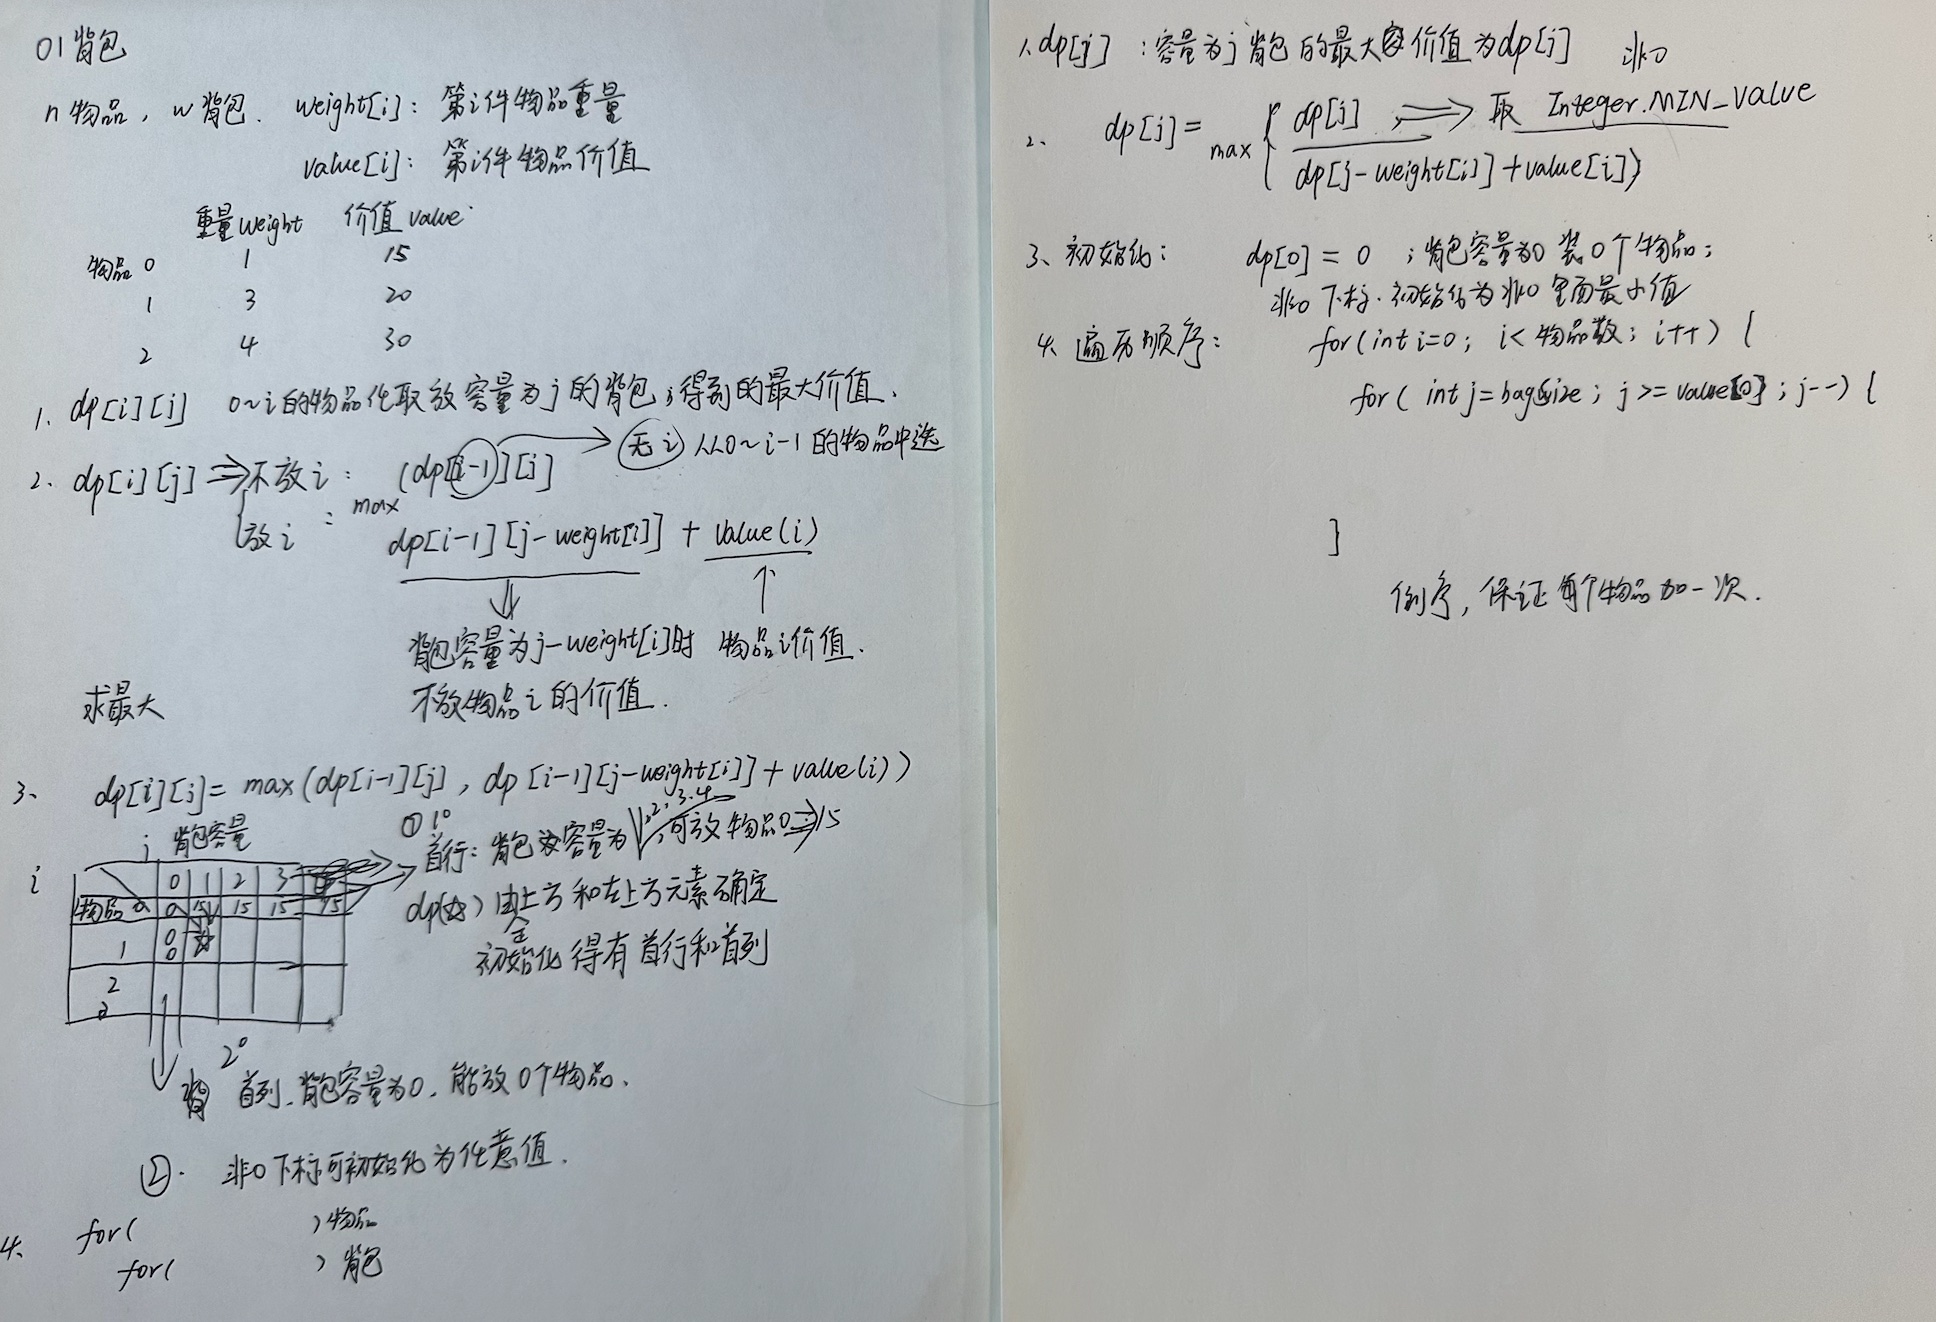 01背包
n物品，w背包． weight[i]：第i件物品重量
value[i]：第i件物品价值
重量weight 价值value
物品0 1 15
1 3 20
2 4 30
1、dp[i][j] 0~i的物品任取放容量为j的背包，得到的最大价值．
2、dp[i][j] ⇒ 不放i： (dp[i-1][j] → 无i 从0~i-1的物品中选
放i： max
dp[i-1][j-weight[i]] + value(i)
背包容量为j-weight[i]时 物品i价值．
不放物品i的价值．
求最大
3、 dp[i][j]= max(dp[i-1][j]，dp[i-1][j-weight[i]]+value(i))
j 背包容量
① 1°
首行：背包容量为1,2,3,4，可放物品0⇒15
i
0 1 2 3 4
物品0 0 15 15 15 15
1 0 ☆
2 0
dp(☆)由上方和左上方元素确定
初始化得有首行和首列
2°
首列．背包容量为0．能放0个物品．
②． 非0下标可初始化为任意值．
4、 for( )物品
for( )背包
1、dp[j]：容量为j背包的最大价值为dp[j] 非0
2、 dp[j]= max { dp[j] ⇒ 取 Integer.MIN_VALUE
dp[j-weight[i]]+value[i])
3、初始化： dp[0] = 0 ；背包容量为0装0个物品；
非0下标．初始化为非0里面最小值
4、遍历顺序： for(int i=0；i<物品数；i++) {
for( int j=bagsize；j>=value[0]；j--) {
}
倒序，保证每个物品加一次．